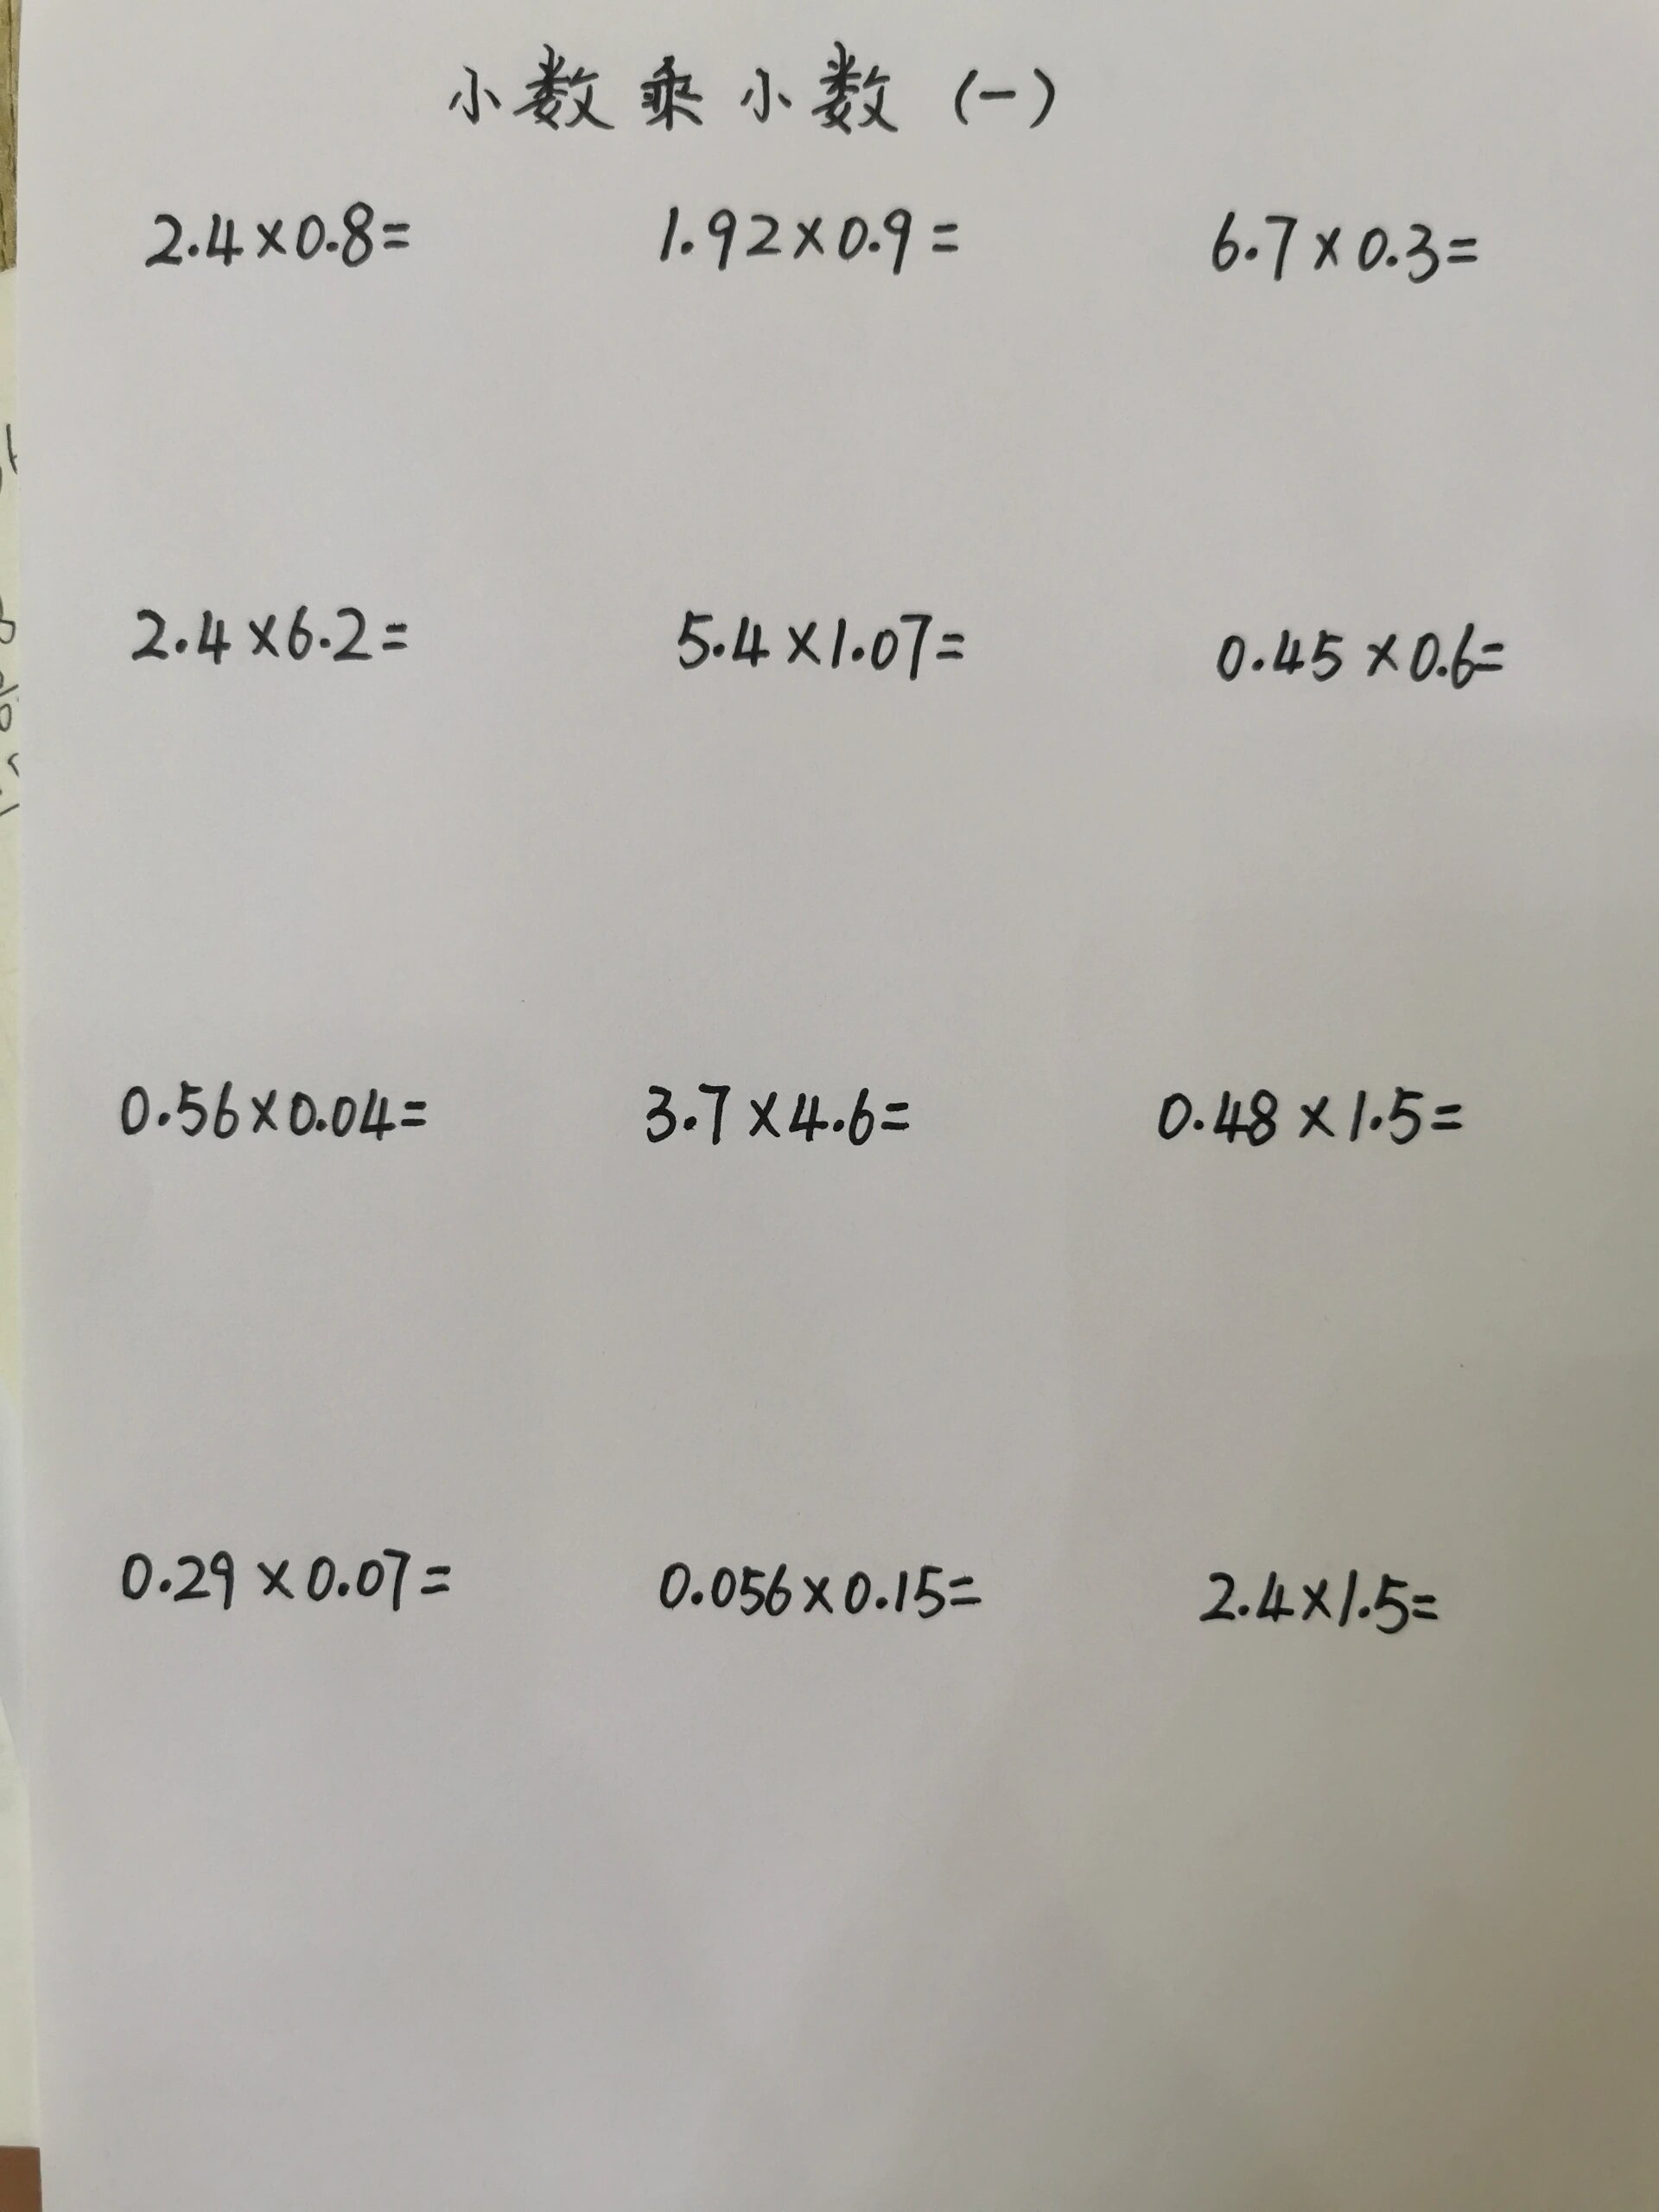 小数乘小数（一）
2.4×0.8= 1.92×0.9= 6.7×0.3=
2.4×6.2= 5.4×1.07= 0.45×0.6=
0.56×0.04= 3.7×4.6= 0.48×1.5=
0.29×0.07= 0.056×0.15= 2.4×1.5=